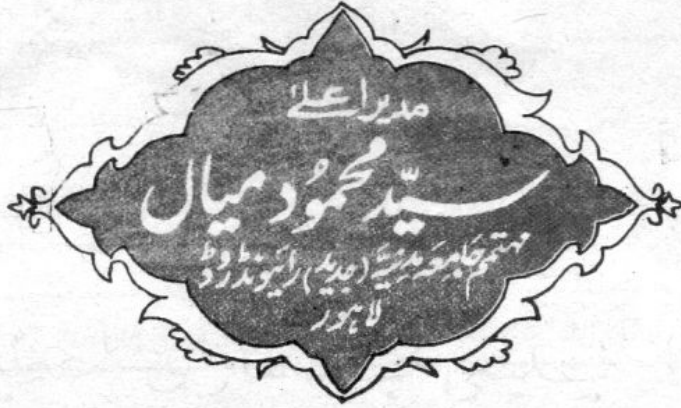 مدیر اعلےٰ
سیّد محمُود میاں
مہتمم جَامِعَہ مدنِیَّہ (جدید) رائیونڈ روڈ
لاہور